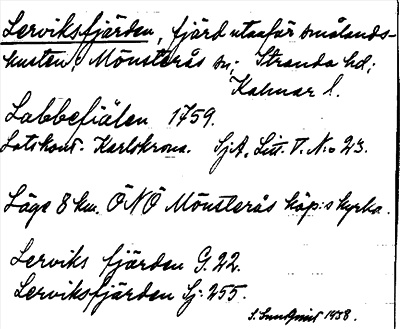 Lerviksfjärden, fjärd utanför smålands-
kusten, Mönsterås sn; Stranda hd;
Kalmar l.
Labbefiälen 1759.
Lotskont. Karlskrona. SjA, Litt. V. N:o 23.
Läge 8 km. ÖNÖ Mönsterås köp:s kyrka.
Lerviks fjärden G. 22.
Lerviksfjärden Sj. 255.
S. Sundqvist 1938.